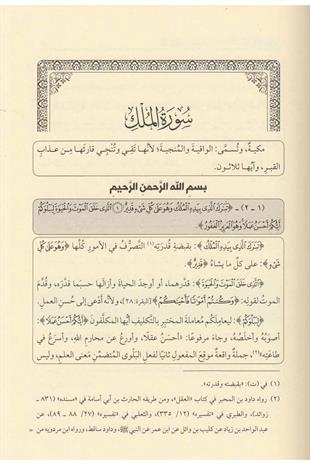 سُورَةُ المُلْكِ
مكيةٌ، وتُسمَّى: الواقيةَ والمُنجيةَ؛ لأنها تَقِي وتُنْجِي قارئَها مِن عذابِ
القبرِ، وآيُها ثلاثون.
بسم الله الرَّحمن الرَّحيم
(١ - ٢) - ﴿تَبَٰرَكَ ٱلَّذِى بِيَدِهِ ٱلْمُلْكُ وَهُوَ عَلَىٰ كُلِّ شَىْءٍ قَدِيرٌ ۝ ٱلَّذِى خَلَقَ ٱلْمَوْتَ وَٱلْحَيَوٰةَ لِيَبْلُوَكُمْ
أَيُّكُمْ أَحْسَنُ عَمَلًا وَهُوَ ٱلْعَزِيزُ ٱلْغَفُورُ﴾.
﴿تَبَٰرَكَ ٱلَّذِى بِيَدِهِ ٱلْمُلْكُ﴾: بقبضةِ قُدرَتِهِ(١) التَّصرُّفُ في الأمورِ كلِّها ﴿وَهُوَ عَلَىٰ كُلِّ
شَىْءٍ﴾: على كلِّ ما يشاءُ ﴿قَدِيرٌ﴾.
﴿ٱلَّذِى خَلَقَ ٱلْمَوْتَ وَٱلْحَيَوٰةَ﴾: قدَّرهما، أو أوجدَ الحياةَ وأزالَها حسبَما قدَّرَه، وقُدِّمَ
الموتُ لقولِه: ﴿وَكُنتُمْ أَمْوَٰتًا فَأَحْيَٰكُمْ﴾ [البقرة: ٢٨]، ولأنَّه أدْعَى إلى حُسنِ العملِ.
﴿لِيَبْلُوَكُمْ﴾: ليعامِلَكم مُعاملةَ المختبِرِ بالتَّكليفِ أيُّها المكلَّفون ﴿أَيُّكُمْ أَحْسَنُ عَمَلًا﴾:
أصوَبُه وأخلصُه، وجاءَ مرفوعًا: «أحسنُ عقلًا، وأورعُ عن محارمِ اللهِ، وأسرَعُ في
طاعَتِه»(٢)، جملةٌ واقعةٌ موقعَ المفعولِ ثانيًا لفعلِ البَلْوى المُتضمِّنِ معنى العلمِ، وليس
(١) في (ت): «بقبضته وقدرته».
(٢) رواه داود بن المحبر في كتاب «العقل»، ومن طريقه الحارث بن أبي أسامة في «مسنده» (٨٣١ -
زوائد)، والطبري في «تفسيره» (١٢/ ٣٣٥)، والثعلبي في «تفسيره» (٢٧/ ٨٨ - ٨٩)، عن
عبد الواحد بن زياد عن كليب بن وائل عن ابن عمر عن النبي ﷺ، وداود ساقط، ورواه ابن مردويه من